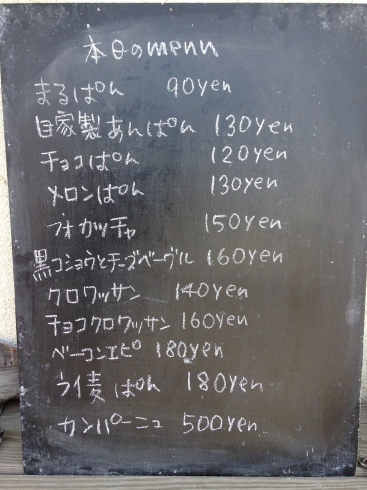 本日のmenu
まるぱん 90yen
自家製あんぱん 130yen
チョコぱん 120yen
メロンぱん 130yen
フォカッチャ 150yen
黒コショウとチーズベーグル 160yen
クロワッサン 140yen
チョコクロワッサン 160yen
ベーコンエピ 180yen
ライ麦ぱん 180yen
カンパーニュ 500yen